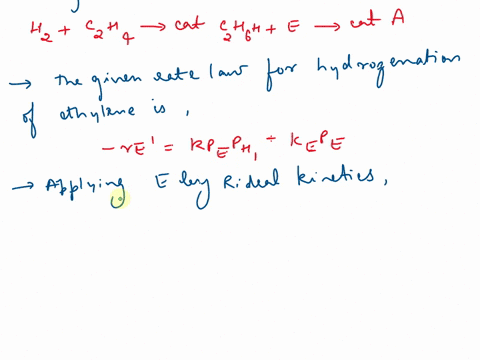 H₂ + C₂H₄ → cat C₂H₆H + E → cat A
→ The given rate law for hydrogenation
of ethylene is,
-rE' = kP_E P_H, + k_E P_E
→ Applying E ley Rideal kinetics,